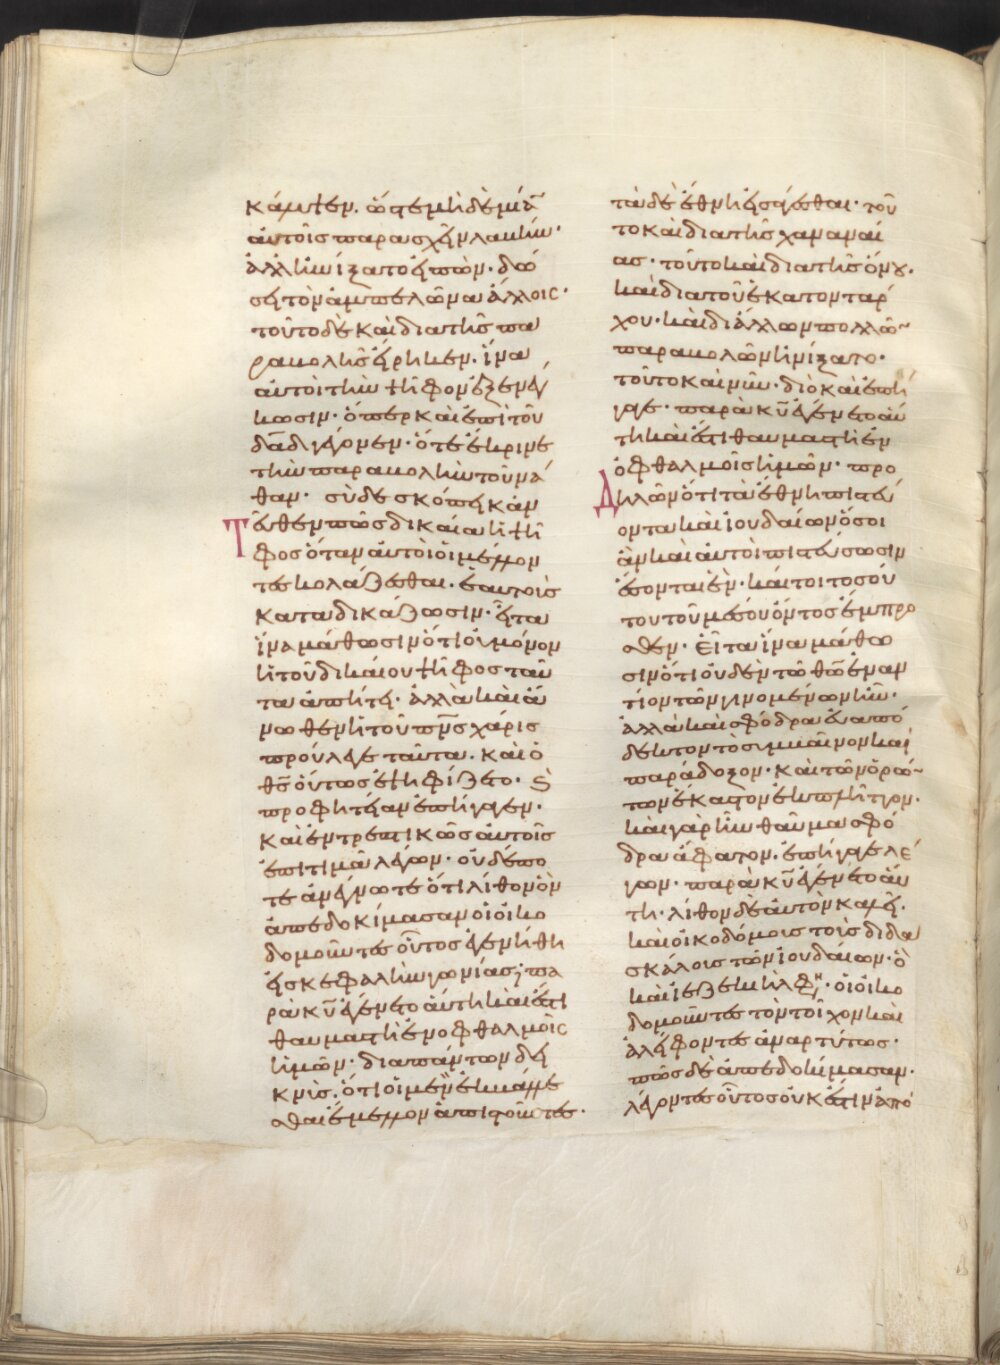 κάμψεν. ὥστε μηδὲ μίᾱ
αὐτοῖς παρασχεῖν λαβήν·
ἀλλ ἠνίξατο εἰπών. δώ
σει τὸν ἀμπελῶνα ἄλλοις·
τοῦτο δὲ καὶ διὰ τῆς πα
ραβολῆς εἴρηκεν. ἵνα
αὐτοὶ τὴν ψῆφον ἐξενέγ
κωσιν· ὅπερ καὶ ἐπὶ τοῦ
δᾱδ γέγονεν. ὅτε ἔκρινε
τὴν παραβολὴν τοῦ νά
θαν. σὺ δὲ σκόπει κἀν
τεῦθεν πῶς δικαία ἡ ψῆ
φος ὅταν αὐτοὶ οἱ μέλλον
τες κολάζεσθαι. ἑαυτοὺς
καταδικάζωσιν. εἶτα
ἵνα μάθωσιν ὅτι οὐ μόνον
ἡ τοῦ δικαίου ψῆφος ταῦ
τα ἀπῄτει. ἀλλὰ καὶ ἄ
νωθεν ἡ τοῦ πν̅ς χάρις
προὔλεγε ταῦτα. καὶ ὁ
θς̅ οὕτως ἐψηφίζετο. ϗ
προφητείαν ἐπήγαγεν.
καὶ ἐντρεπτικῶς αὐτοῖς
ἐπιτιμᾷ λέγων. οὐδέπο
τε ἀνέγνωτε ὅτι λίθον ὃν
ἀπεδοκίμασαν οἱ οἰκο
δομοῦντες οὗτος ἐγενήθη
εἰς κεφαλὴν γωνίας; πα
ρὰ κῡ ἐγένετο αὕτη καὶ ἔστι
θαυμαστὴ ἐν ὀφθαλμοῖς
ἡμῶν. διὰ πάντων δει
κνύς. ὅτι οἱ μὲν ἐκβάλλε
σθαι ἔμελλον ἀπιστοῦντες.
τὰ δὲ ἔθνη εἰσιέσθαι. τοῦ
το καὶ διὰ τῆς χαναναί
ας. τοῦτο καὶ διὰ τῆς ὄνου.
καὶ διὰ τοῦ ἑκατοντάρ
χου. καὶ δι ἄλλων πολλῶ̅
παραβολῶν ἠνίξατο.
τοῦτο καὶ νῦν. διὸ καὶ ἐπή
γαγε. παρὰ κῡ ἐγένετο αὕ
τη καὶ ἔστι θαυμαστὴ ἐν
ὀφθαλμοῖς ἡμῶν. προ
δηλῶν ὅτι τὰ ἔθνη πιστεύ
οντα καὶ ἰουδαίων ὅσοι
ἂν καὶ αὐτοὶ πιστεύσωσιν
ἔσονται ἕν. καίτοι τοσού
του τοῦ μέσου ὄντος ἔμπρο
σθεν. εἶτα ἵνα μάθω
σιν ὅτι οὐδὲν τῶ θῶ ἐναν
τίον τῶν γινομένων ἦν.
ἀλλὰ καὶ σφόδρα εὐαπό
δεκτον τὸ συμβαῖνον καὶ
παράδοξον. καὶ τῶν ὁρών̅
των ἕκαστον ἐκπλῆττον.
καὶ γὰρ ἦν θαῦμα σφό
δρα ἄφατον. ἐπήγαγε λέ
γων. παρὰ κῡ ἐγένετο αὕ
τη. λίθον δὲ αὐτὸν καλεῖ.
καὶ οἰκοδόμοις τοὺς διδα
σκάλους τῶν ἰουδαίων. ὃ
καὶ ἰεζεκιήλ φη̅. οἱ οἰκο
δομοῦντες τὸν τοῖχον καὶ
ἀλείφοντες ἀναρτύτως.
πῶς δὲ ἀπεδοκίμασαν.
λέγοντες οὗτος οὐκ ἔστιν ἀπὸ